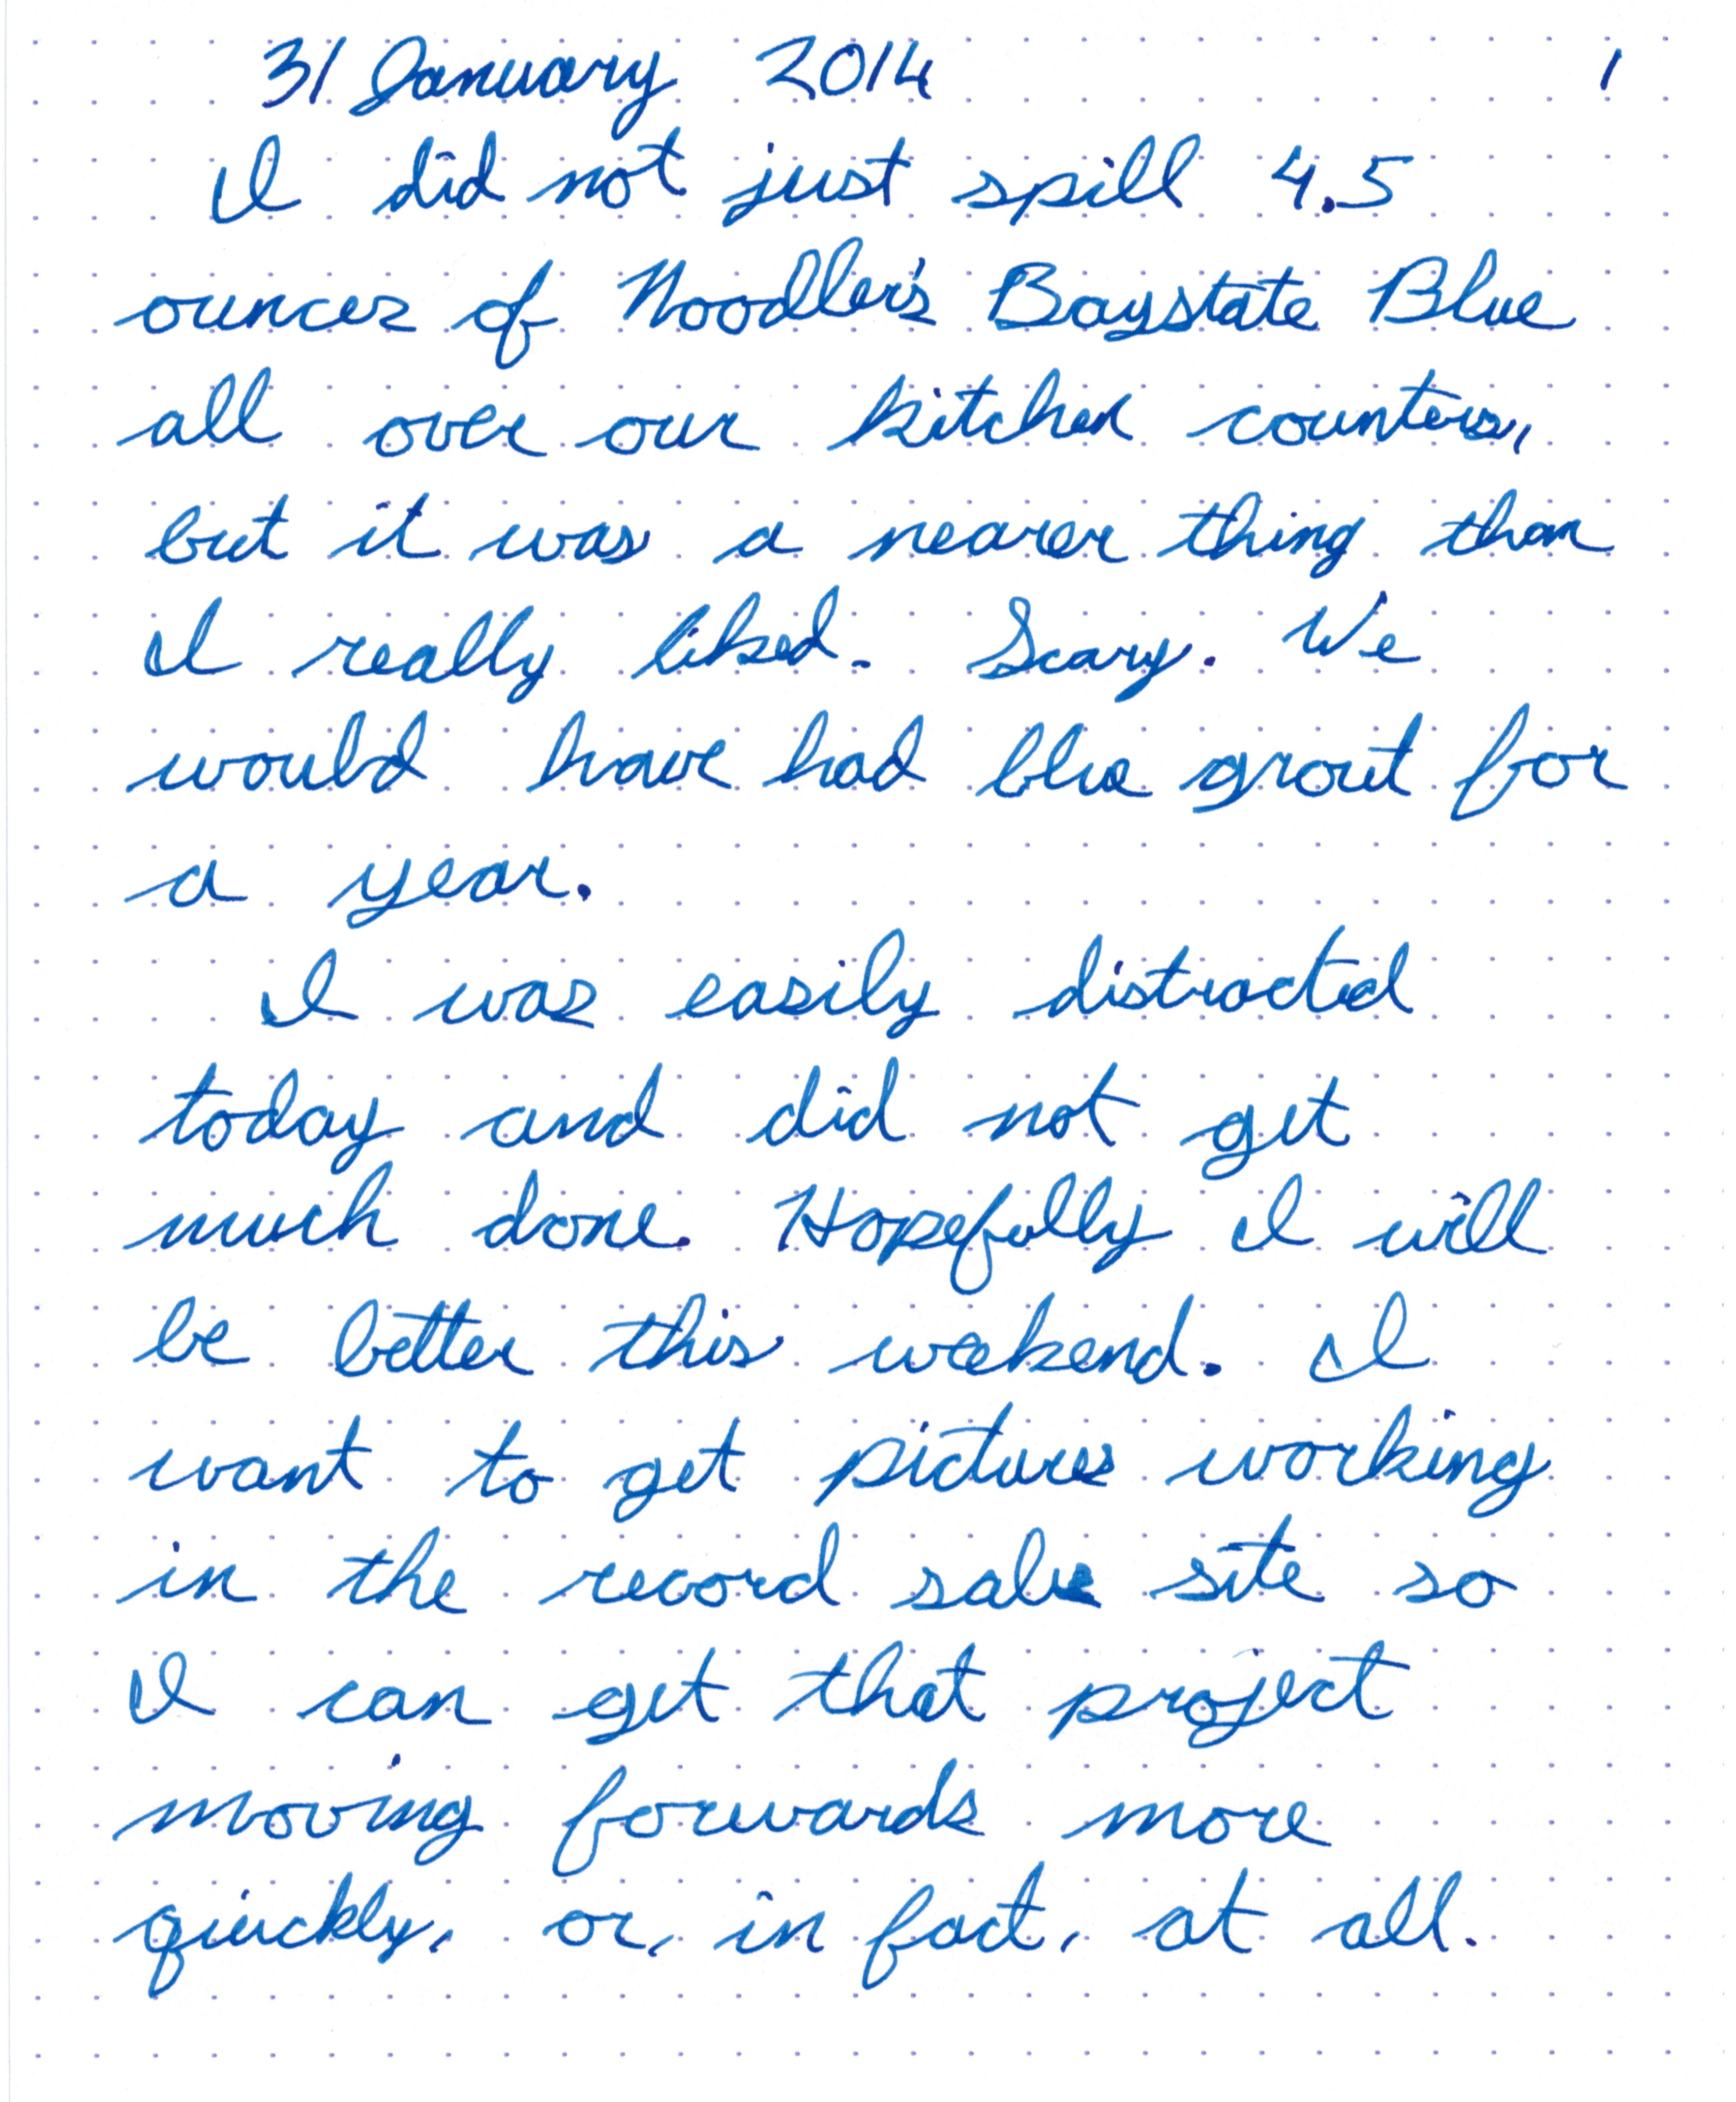 31 January 2014 1
I did not just spill 4.5
ounces of Noodler's Baystate Blue
all over our kitchen counters,
but it was a nearer thing than
I really liked. Scary. We
would have had blue grout for
a year.
I was easily distracted
today and did not get
much done. Hopefully I will
be better this weekend. I
want to get pictures working
in the record sales site so
I can get that project
moving forwards more
quickly, or, in fact, at all.